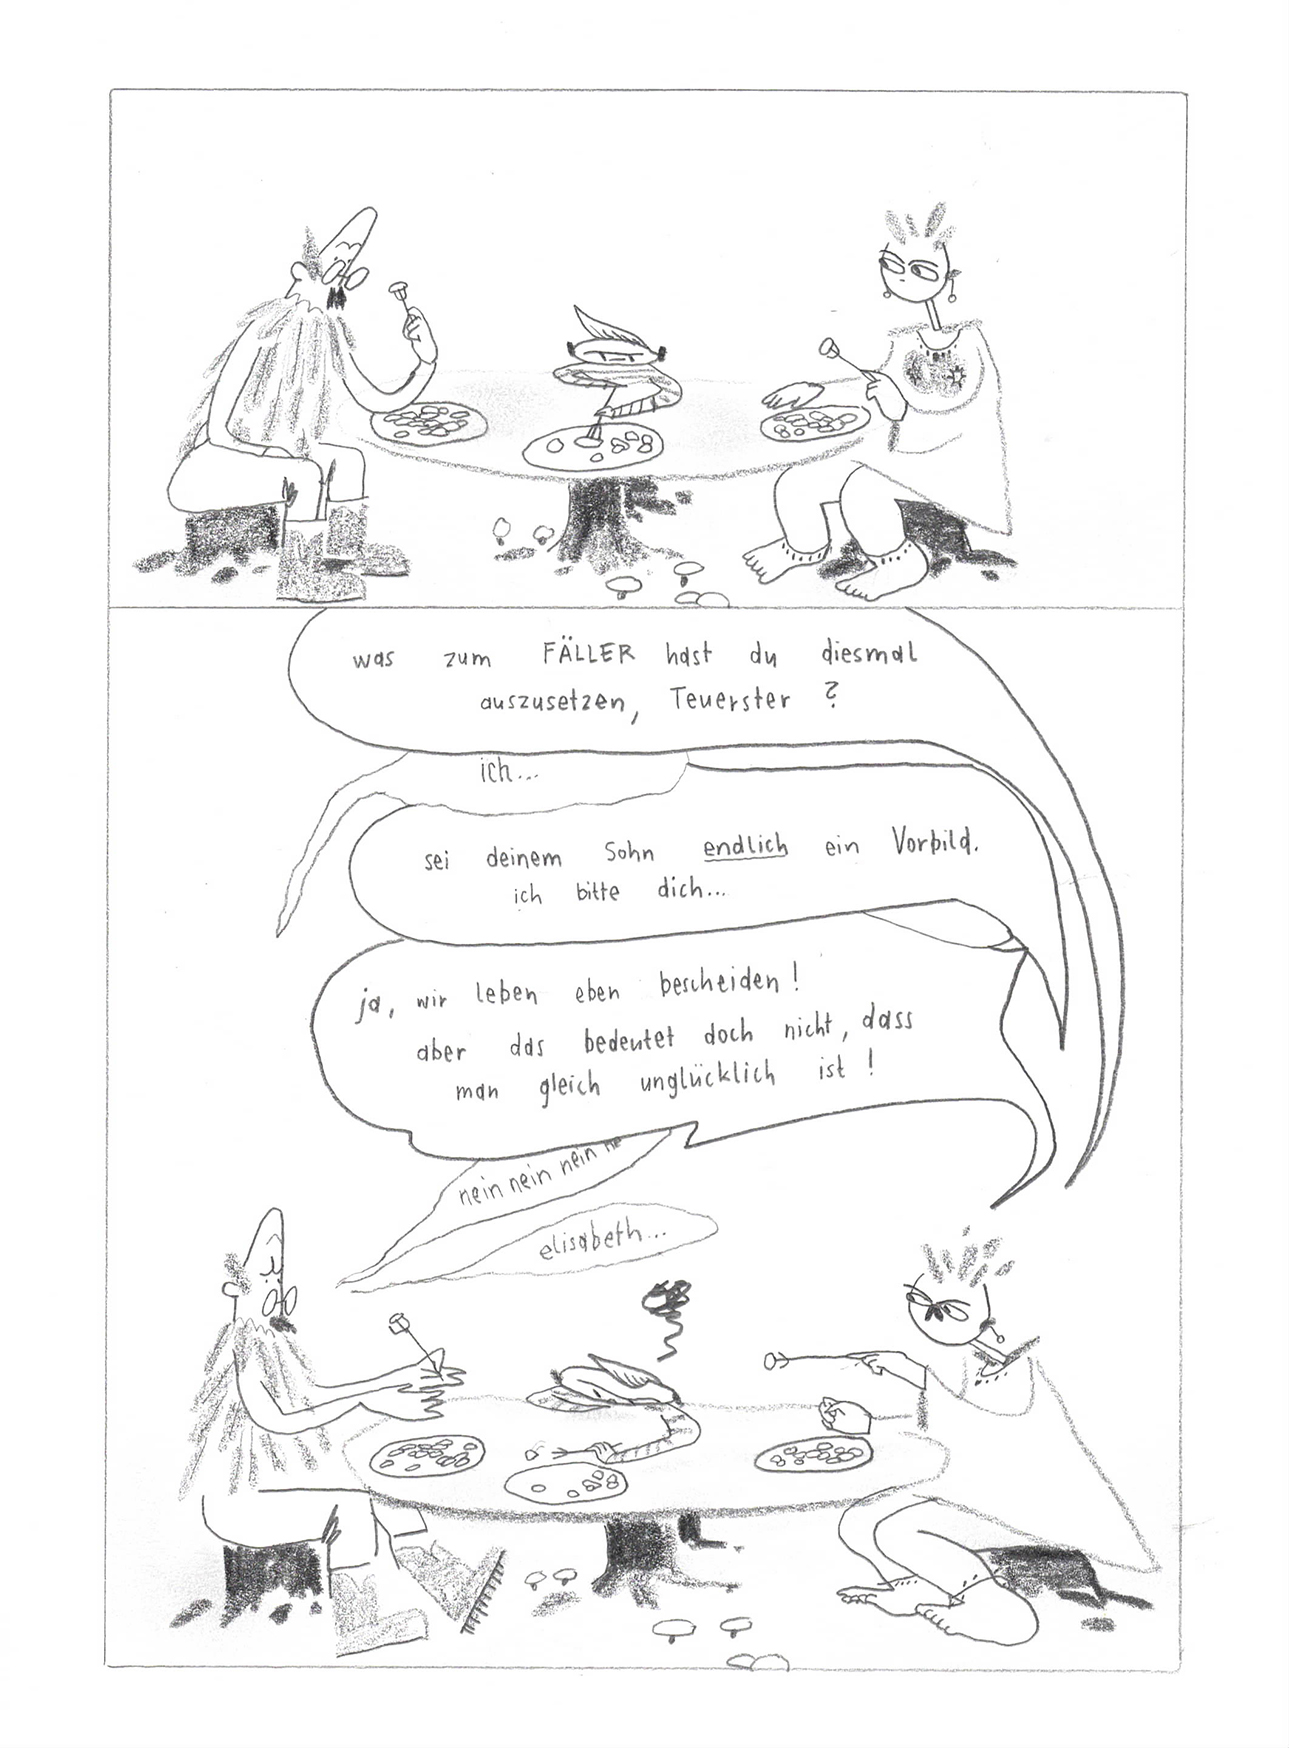 was zum FÄLLER hast du diesmal
auszusetzen, Teuerster ?
ich...
sei deinem Sohn endlich ein Vorbild.
ich bitte dich...
ja, wir leben eben bescheiden !
aber das bedeutet doch nicht, dass
man gleich unglücklich ist !
nein nein nein ne
elisabeth...